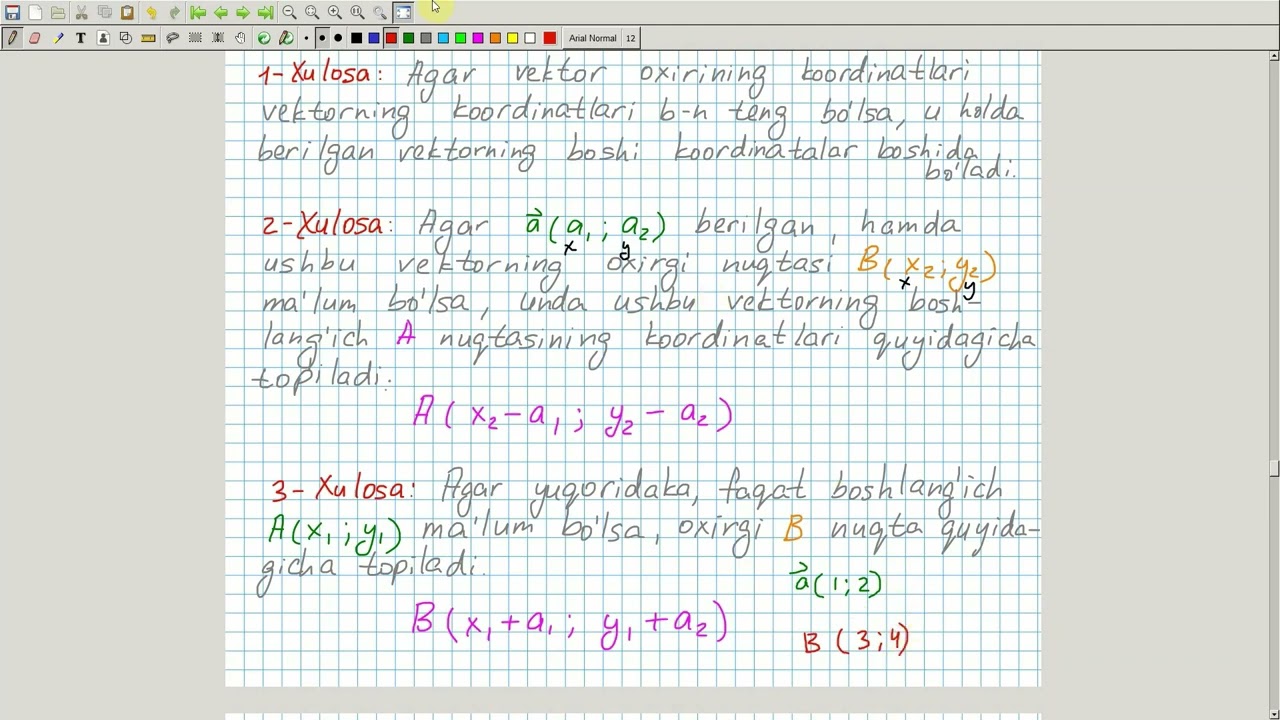 Arial Normal 12
1-Xulosa: Agar vektor oxirining koordinatlari
vektorning koordinatlari b-n teng bo'lsa, u holda
berilgan vektorning boshi koordinatalar boshida
bo'ladi.
2-Xulosa: Agar a⃗(a₁; a₂) berilgan, hamda
x y
ushbu vektorning oxirgi nuqtasi B(x₂; y₂)
x y
ma'lum bo'lsa, unda ushbu vektorning bosh-
lang'ich A nuqtasining koordinatlari quyidagicha
topiladi:
A(x₂-a₁; y₂-a₂)
3-Xulosa: Agar yuqoridaka, faqat boshlang'ich
A(x₁; y₁) ma'lum bo'lsa, oxirgi B nuqta quyida-
gicha topiladi.
a⃗(1; 2)
B(x₁+a₁; y₁+a₂)
B (3; 4)